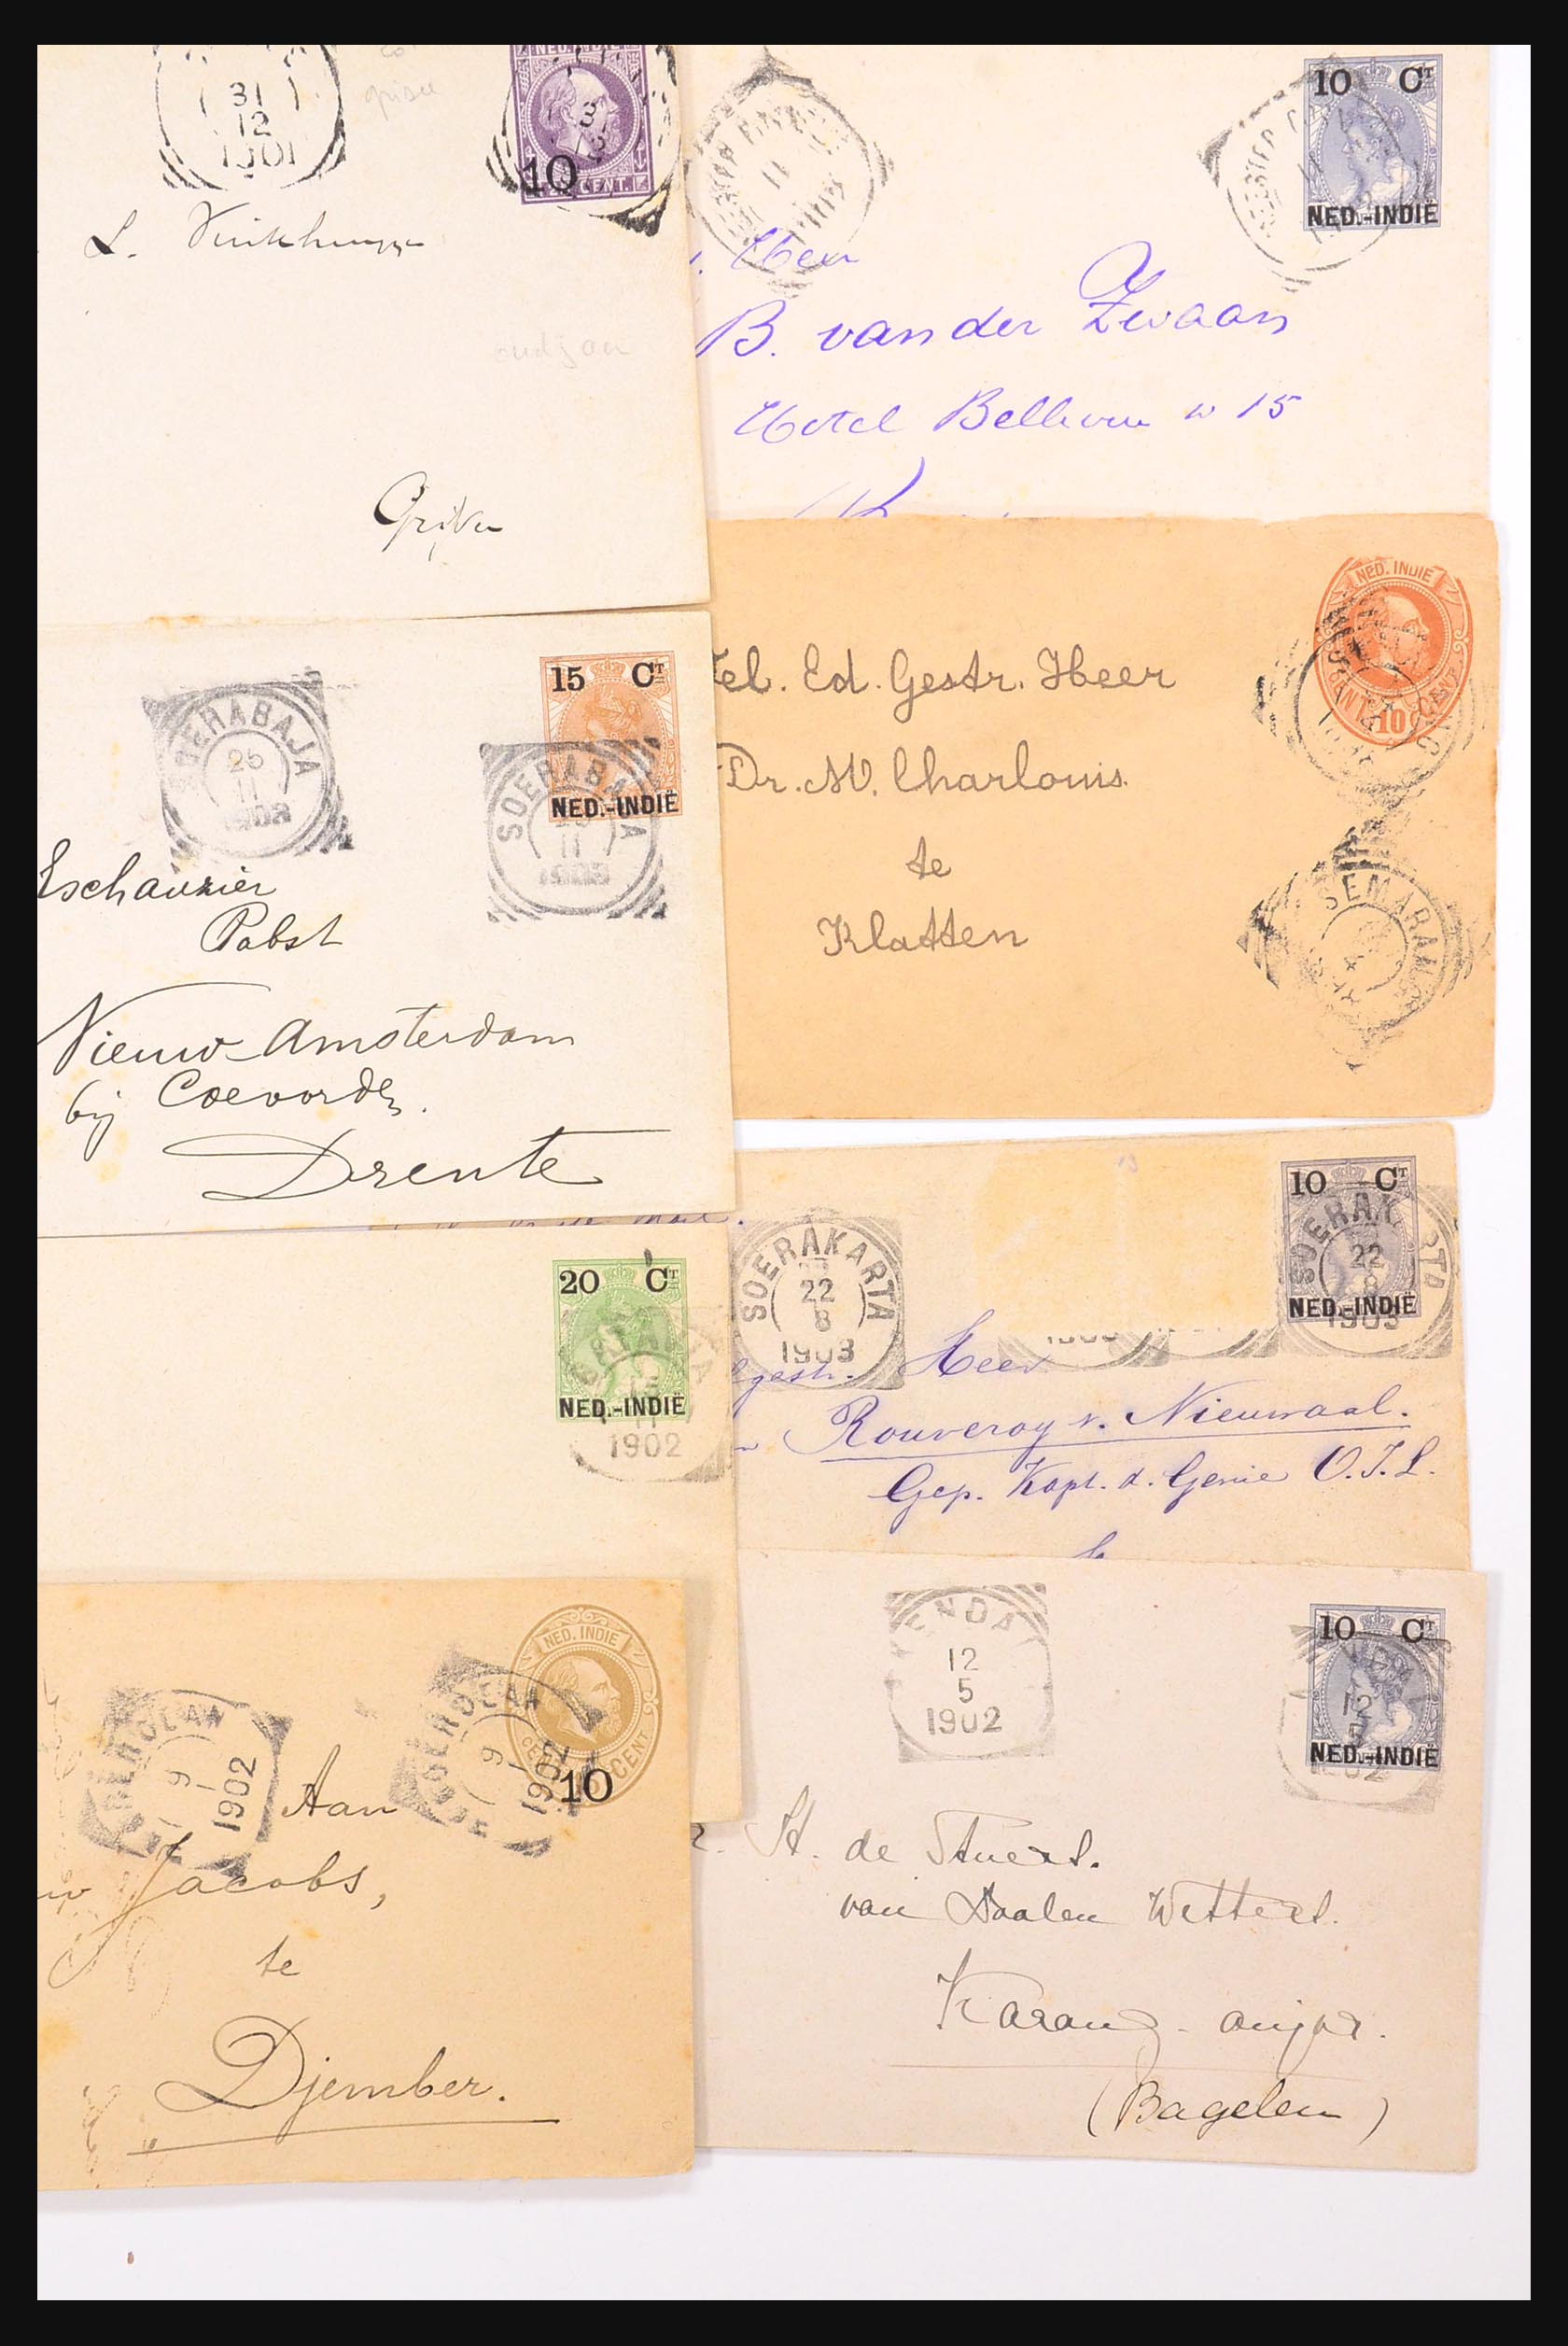 31
12
1901
NED. INDIE
10
CENT.
L.
10 CT
NED.-INDIË
11
Heer
B. van der Zwaan
Hotel Bellevue
15
15 CT
NED.-INDIË
SOERABAJA
25
11
SOERABAJA
11
Eschauzier
Pabst
Nieuw-Amsterdam
bij Coevorden.
Drente
NED. INDIE
10 CENT
Wel. Ed. Gestr. Heer
Dr. M. Charlouis.
te
Klatten
SEMARANG
4
10 CT
NED.-INDIË
SOERAKARTA
22
8
1903
SOERAKARTA
22
8
1903
gestr. Heer
Rouveroy v. Nieuwaal.
Gep. Kapt. d. Genie O.I.L.
20 CT
NED.-INDIË
11
1902
NED. INDIE
CENT
10
9
1
1902
9
1
1902
Aan
Jacobs,
te
Djember.
10 CT
NED.-INDIË
12
5
1902
12
5
H. de Stuers.
van Daalen Wetters.
Karang-anjar.
(Bagelen)